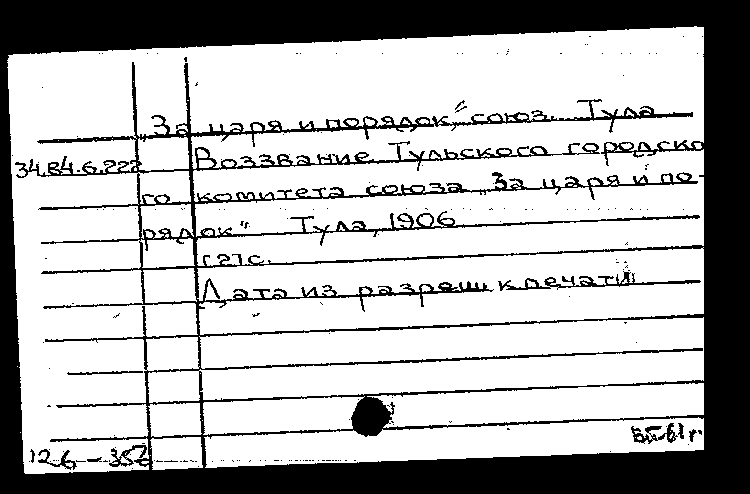 „За царя и порядок," союз. Тула
34.84.6.222 Воззвание Тульского городско
го комитета союза „За царя и по-
рядок" Тула, 1906
[2]с.
Дата из разреш к печати
126-352